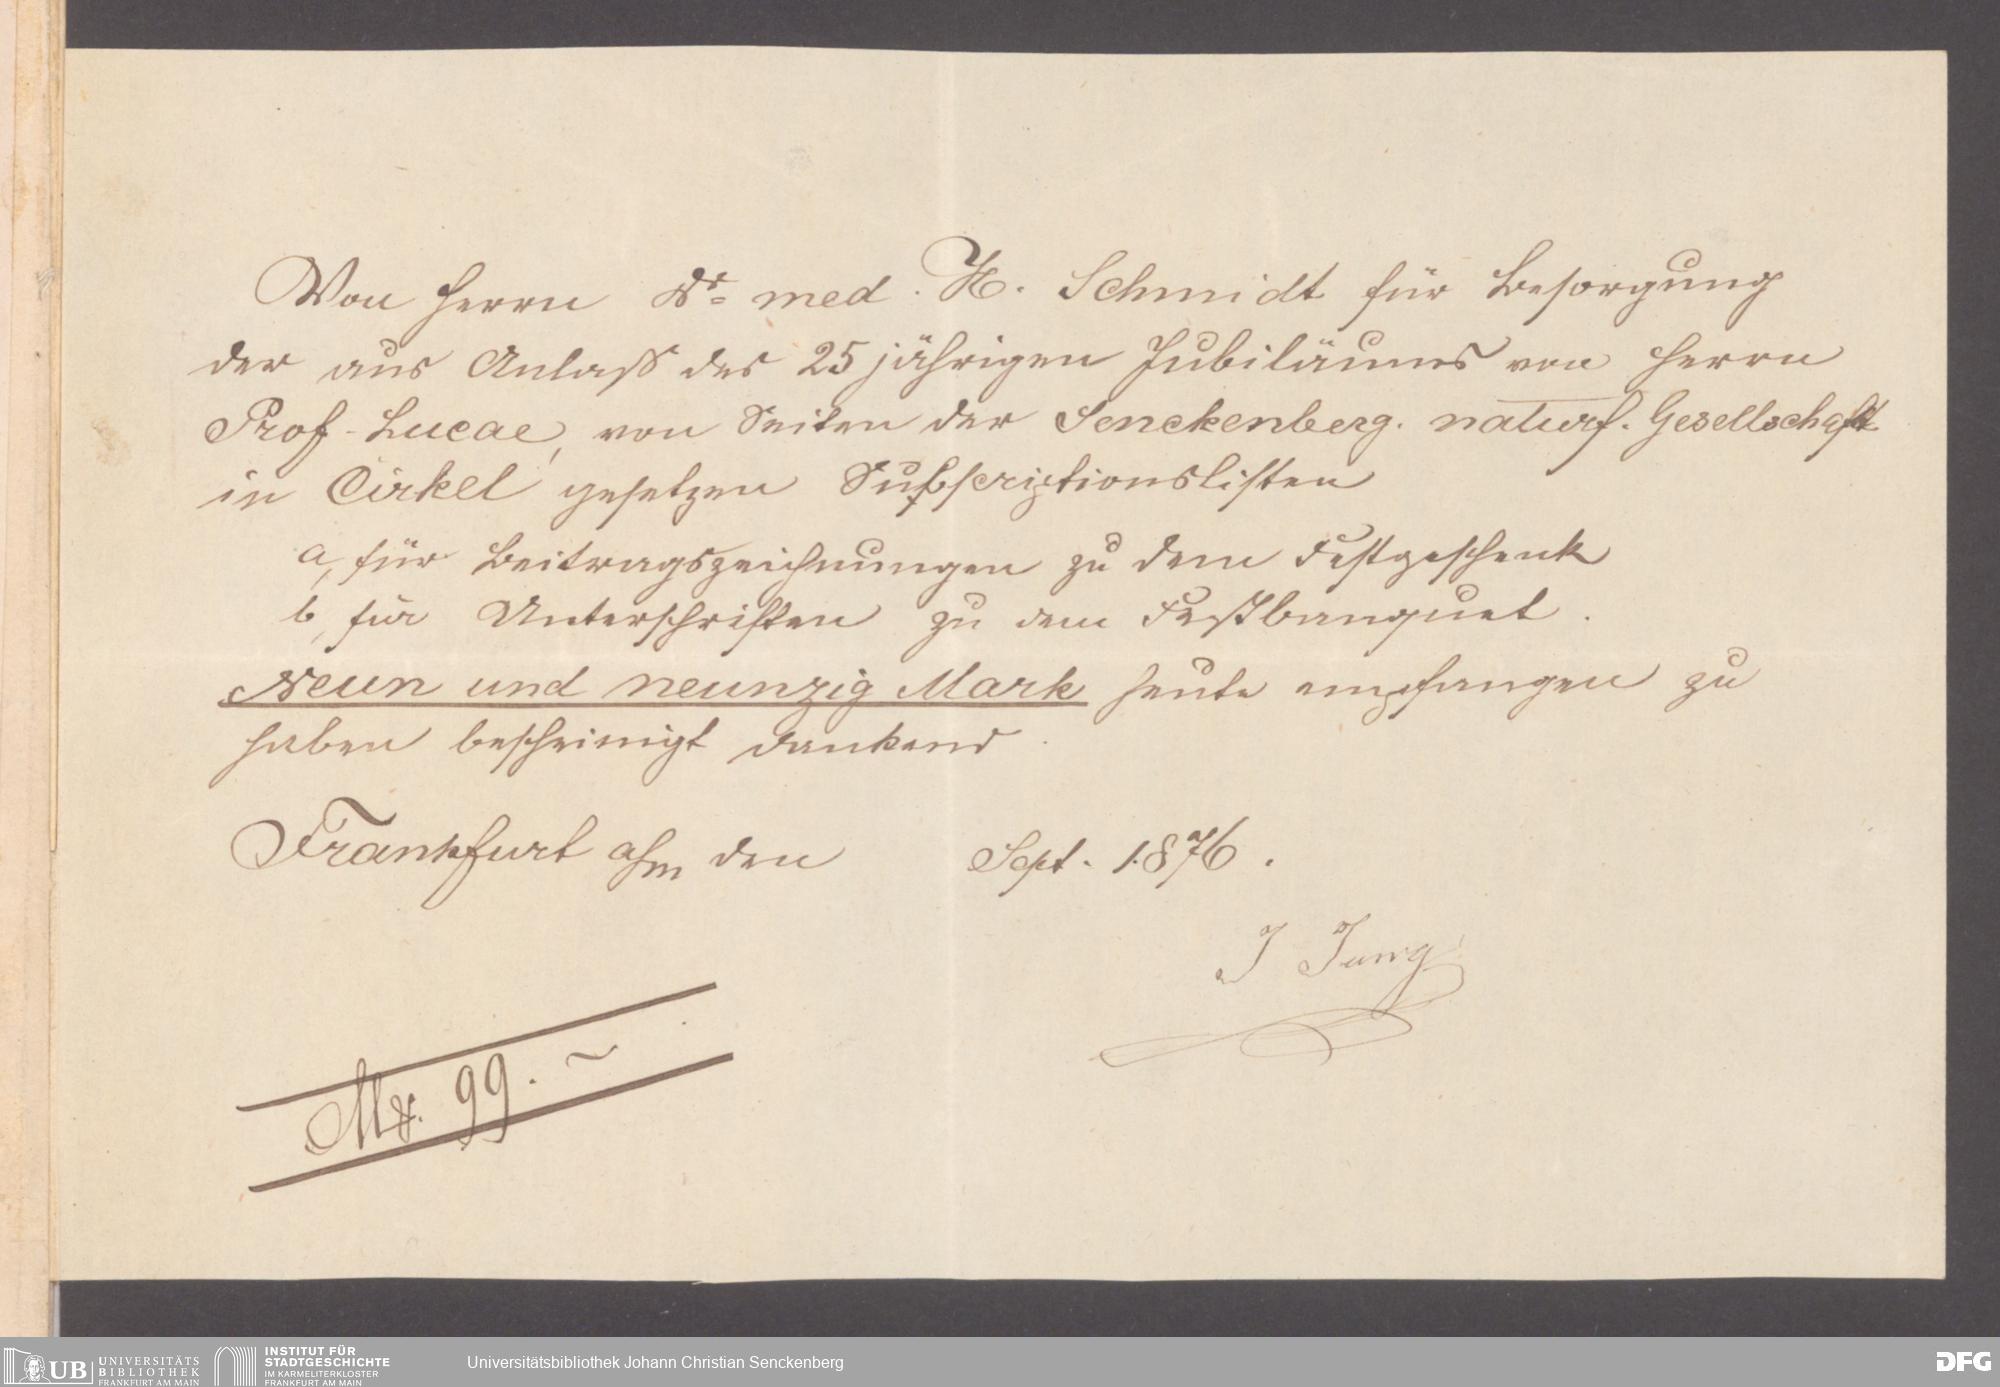 Von Herrn Dr. med. H. Schmidt für Besorgung
der aus Anlaß des 25 jährigen Jubiläums von Herrn
Prof. Lucae, von Seiten der Senckenberg. naturf. Gesellschaft
in Cirkel gesetzen Subscriptionslisten
a, für Beitragszeichnungen zu dem Festgeschenk
b, für Unterschriften zu dem Festbanquet.
Neun und neunzig Mark heute empfangen zu
haben bescheinigt dankend.
Frankfurt a/m den Sept. 1876.
J Jung
Mk. 99. ~
UB UNIVERSITÄTS BIBLIOTHEK FRANKFURT AM MAIN
INSTITUT FÜR STADTGESCHICHTE IM KARMELITERKLOSTER FRANKFURT AM MAIN
Universitätsbibliothek Johann Christian Senckenberg
DFG